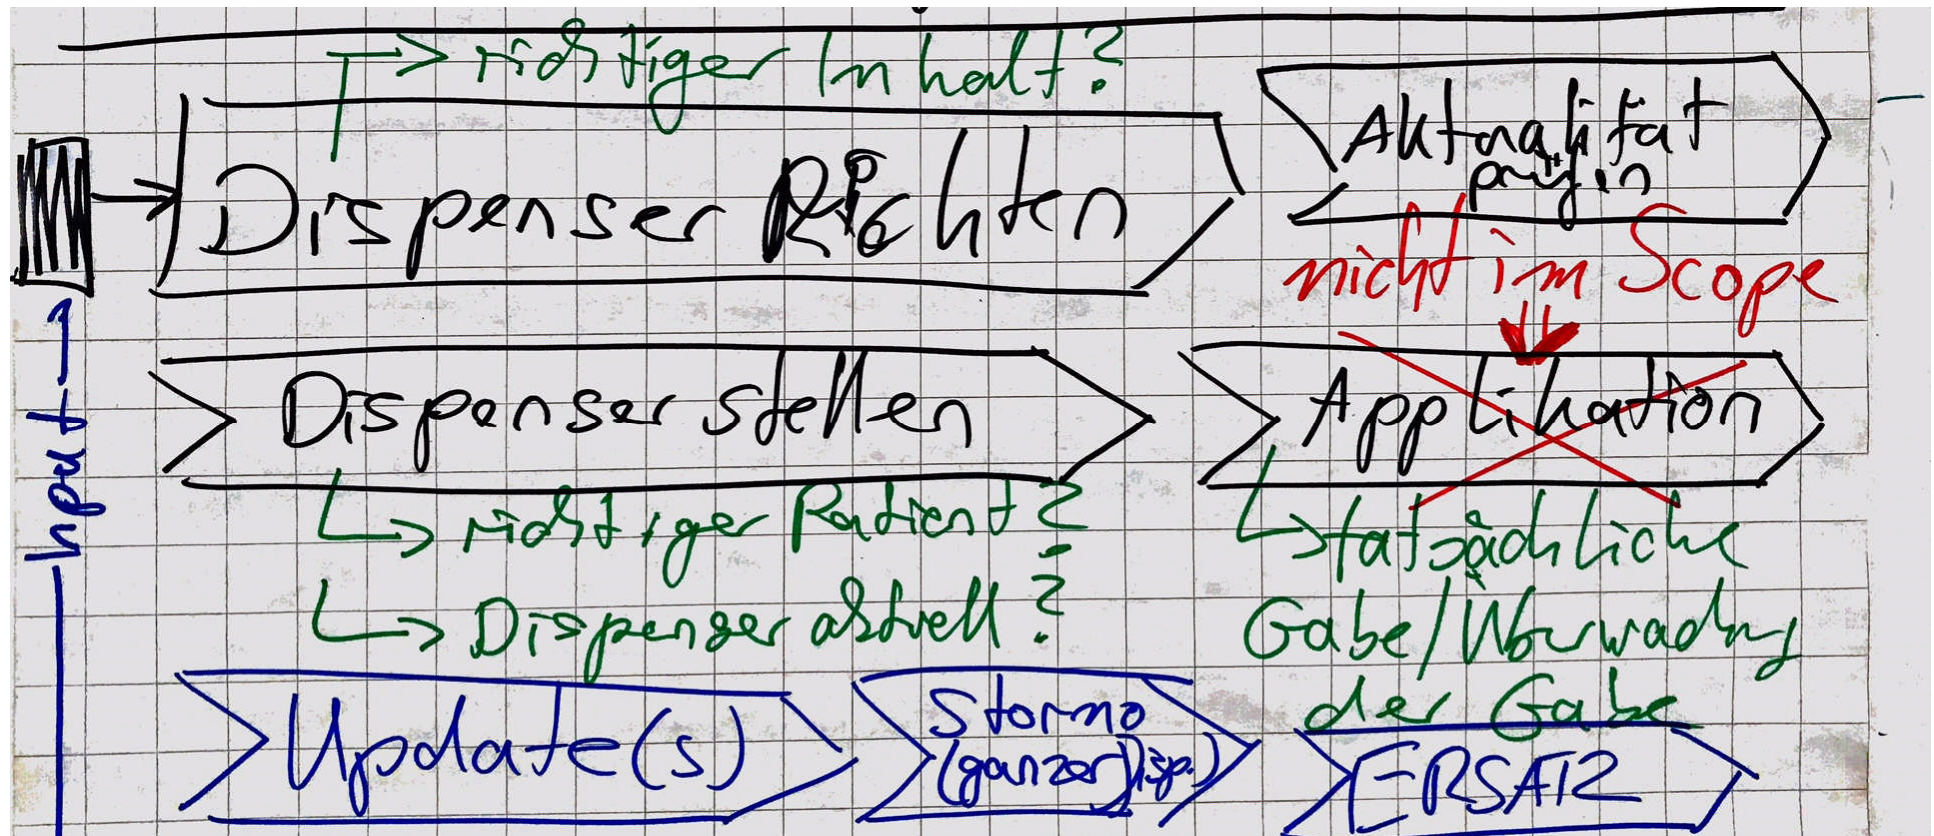 richtiger Inhalt?
Dispenser Richten
Aktualität
prüfen
nicht im Scope
Input
Dispenser stellen
Applikation
richtiger Patient?
Dispenser aktuell?
tatsächliche
Gabe/Überwachung
der Gabe
Update(s)
Storno
(ganzer Disp.)
ERSATZ